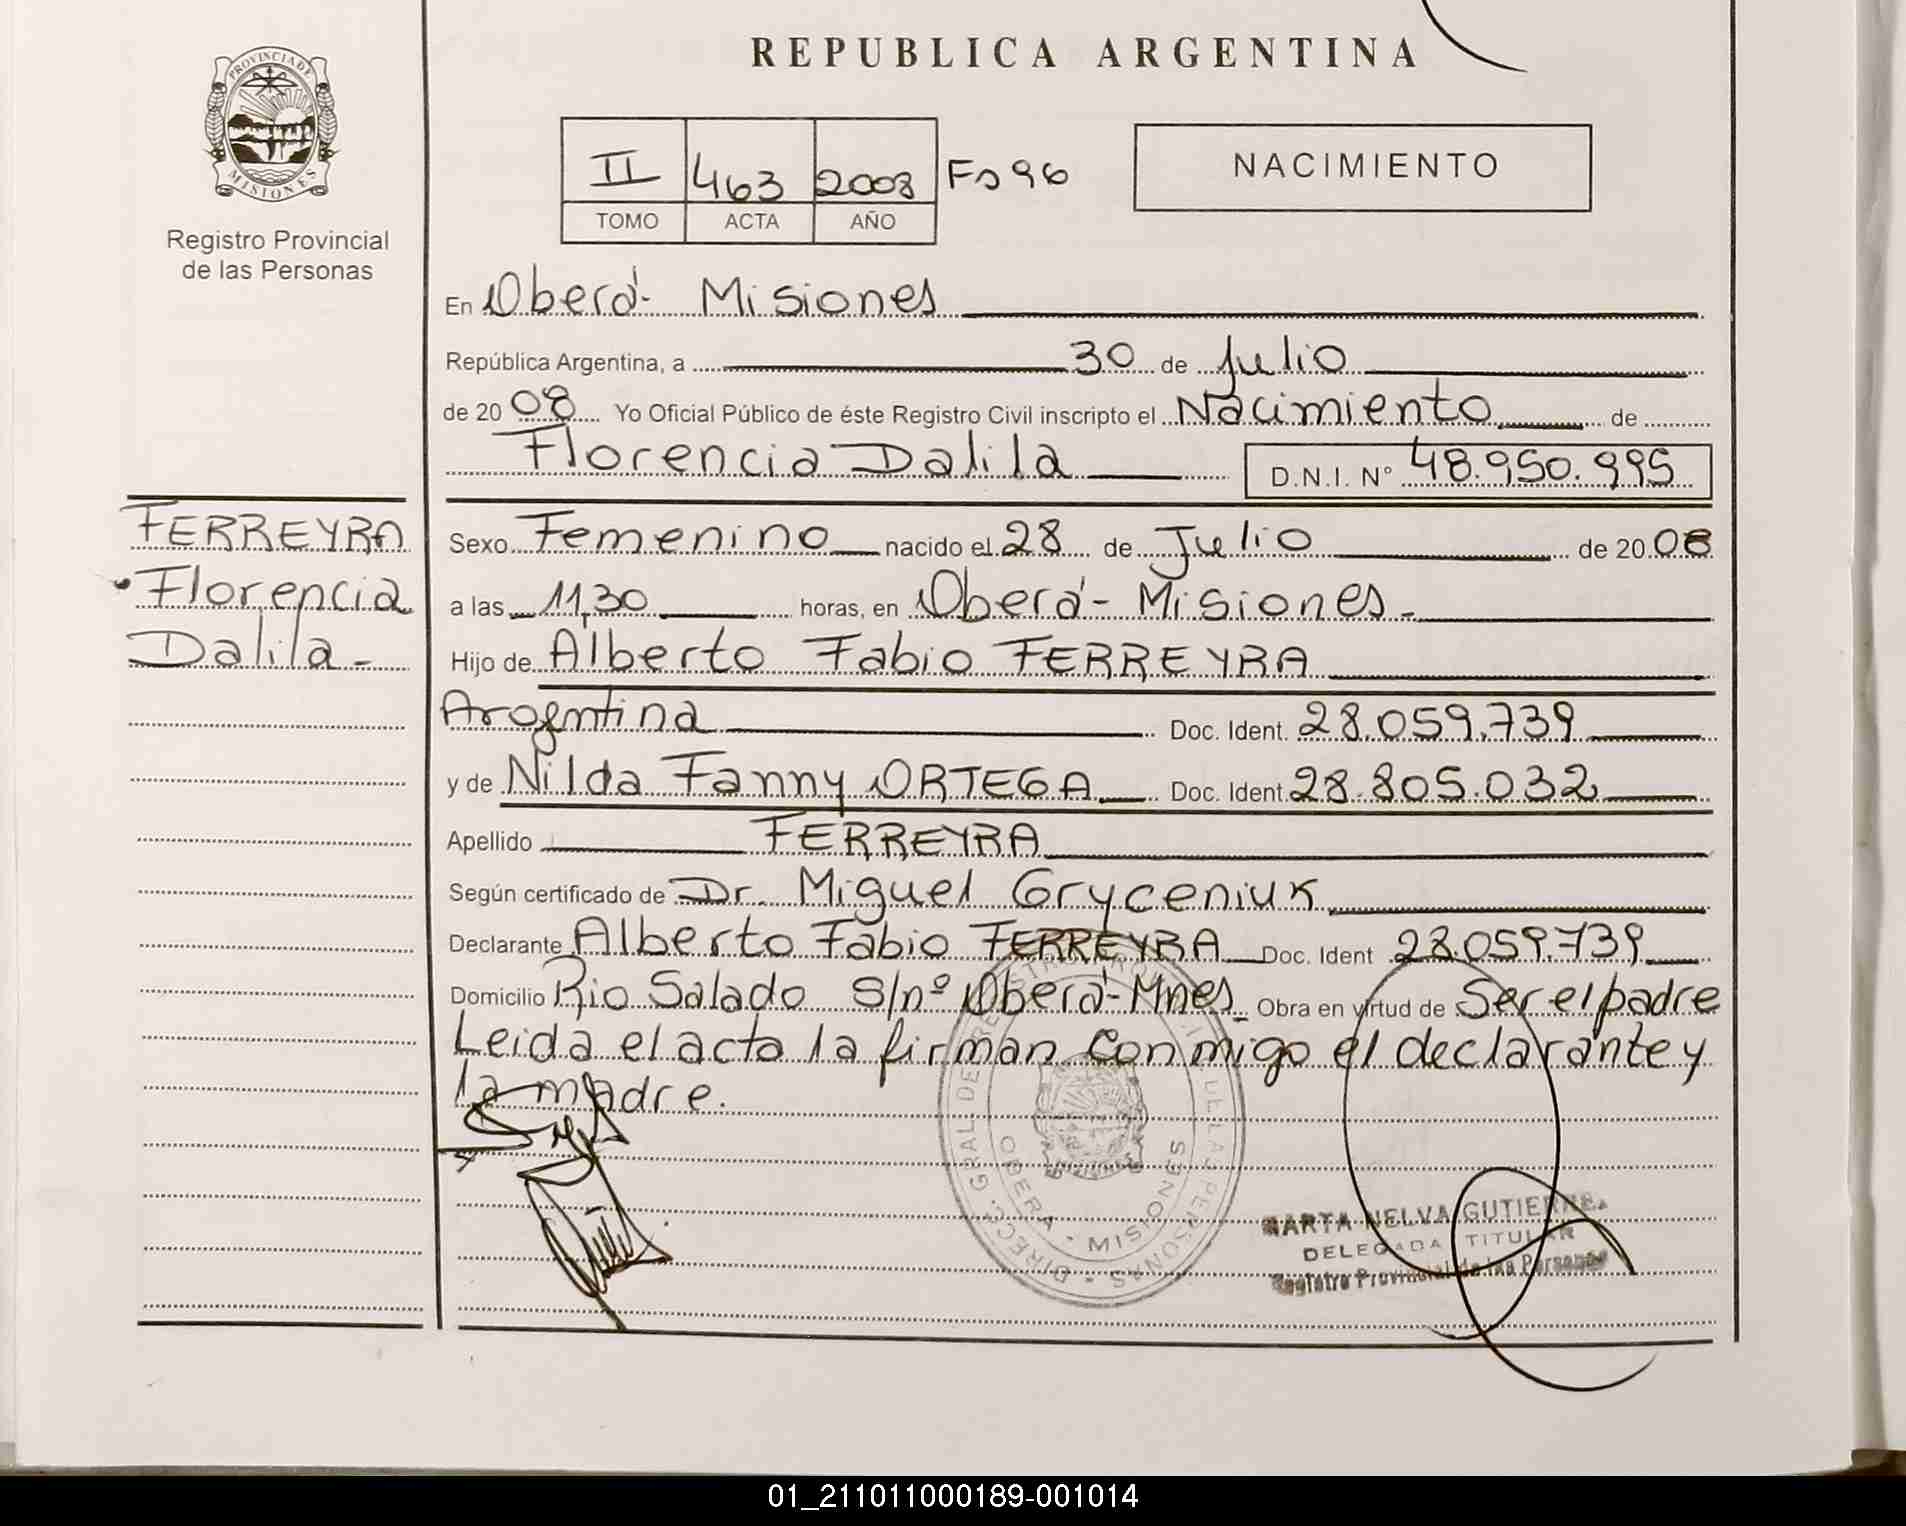 REPUBLICA ARGENTINA
PROVINCIA DE
MISIONES
Registro Provincial
de las Personas
II 463 2008 Fs 96
TOMO ACTA AÑO
NACIMIENTO
En Oberá- Misiones
República Argentina, a 30 de Julio
de 2008 Yo Oficial Público de éste Registro Civil inscripto el Nacimiento de
Florencia Dalila D.N.I. N° 48.950.995
FERREYRA
Florencia
Dalila-
Sexo Femenino nacido el 28 de Julio de 2008
a las 11,30 horas, en Oberá- Misiones-
Hijo de Alberto Fabio FERREYRA
Argentina Doc. Ident. 28.059.739
y de Nilda Fanny ORTEGA Doc. Ident. 28.805.032
Apellido FERREYRA
Según certificado de Dr. Miguel Gryceniuk
Declarante Alberto Fabio FERREYRA Doc. Ident 28.059.739
Domicilio Rio Salado S/nº Oberá-Mnes Obra en virtud de Ser el padre
Leida el acta la firman conmigo el declarante y
la madre.
OBERA - MISIONES
MARTA NELVA GUTIERREZ
DELEGADA TITULAR
Registro Provincial de las Personas
01_211011000189-001014